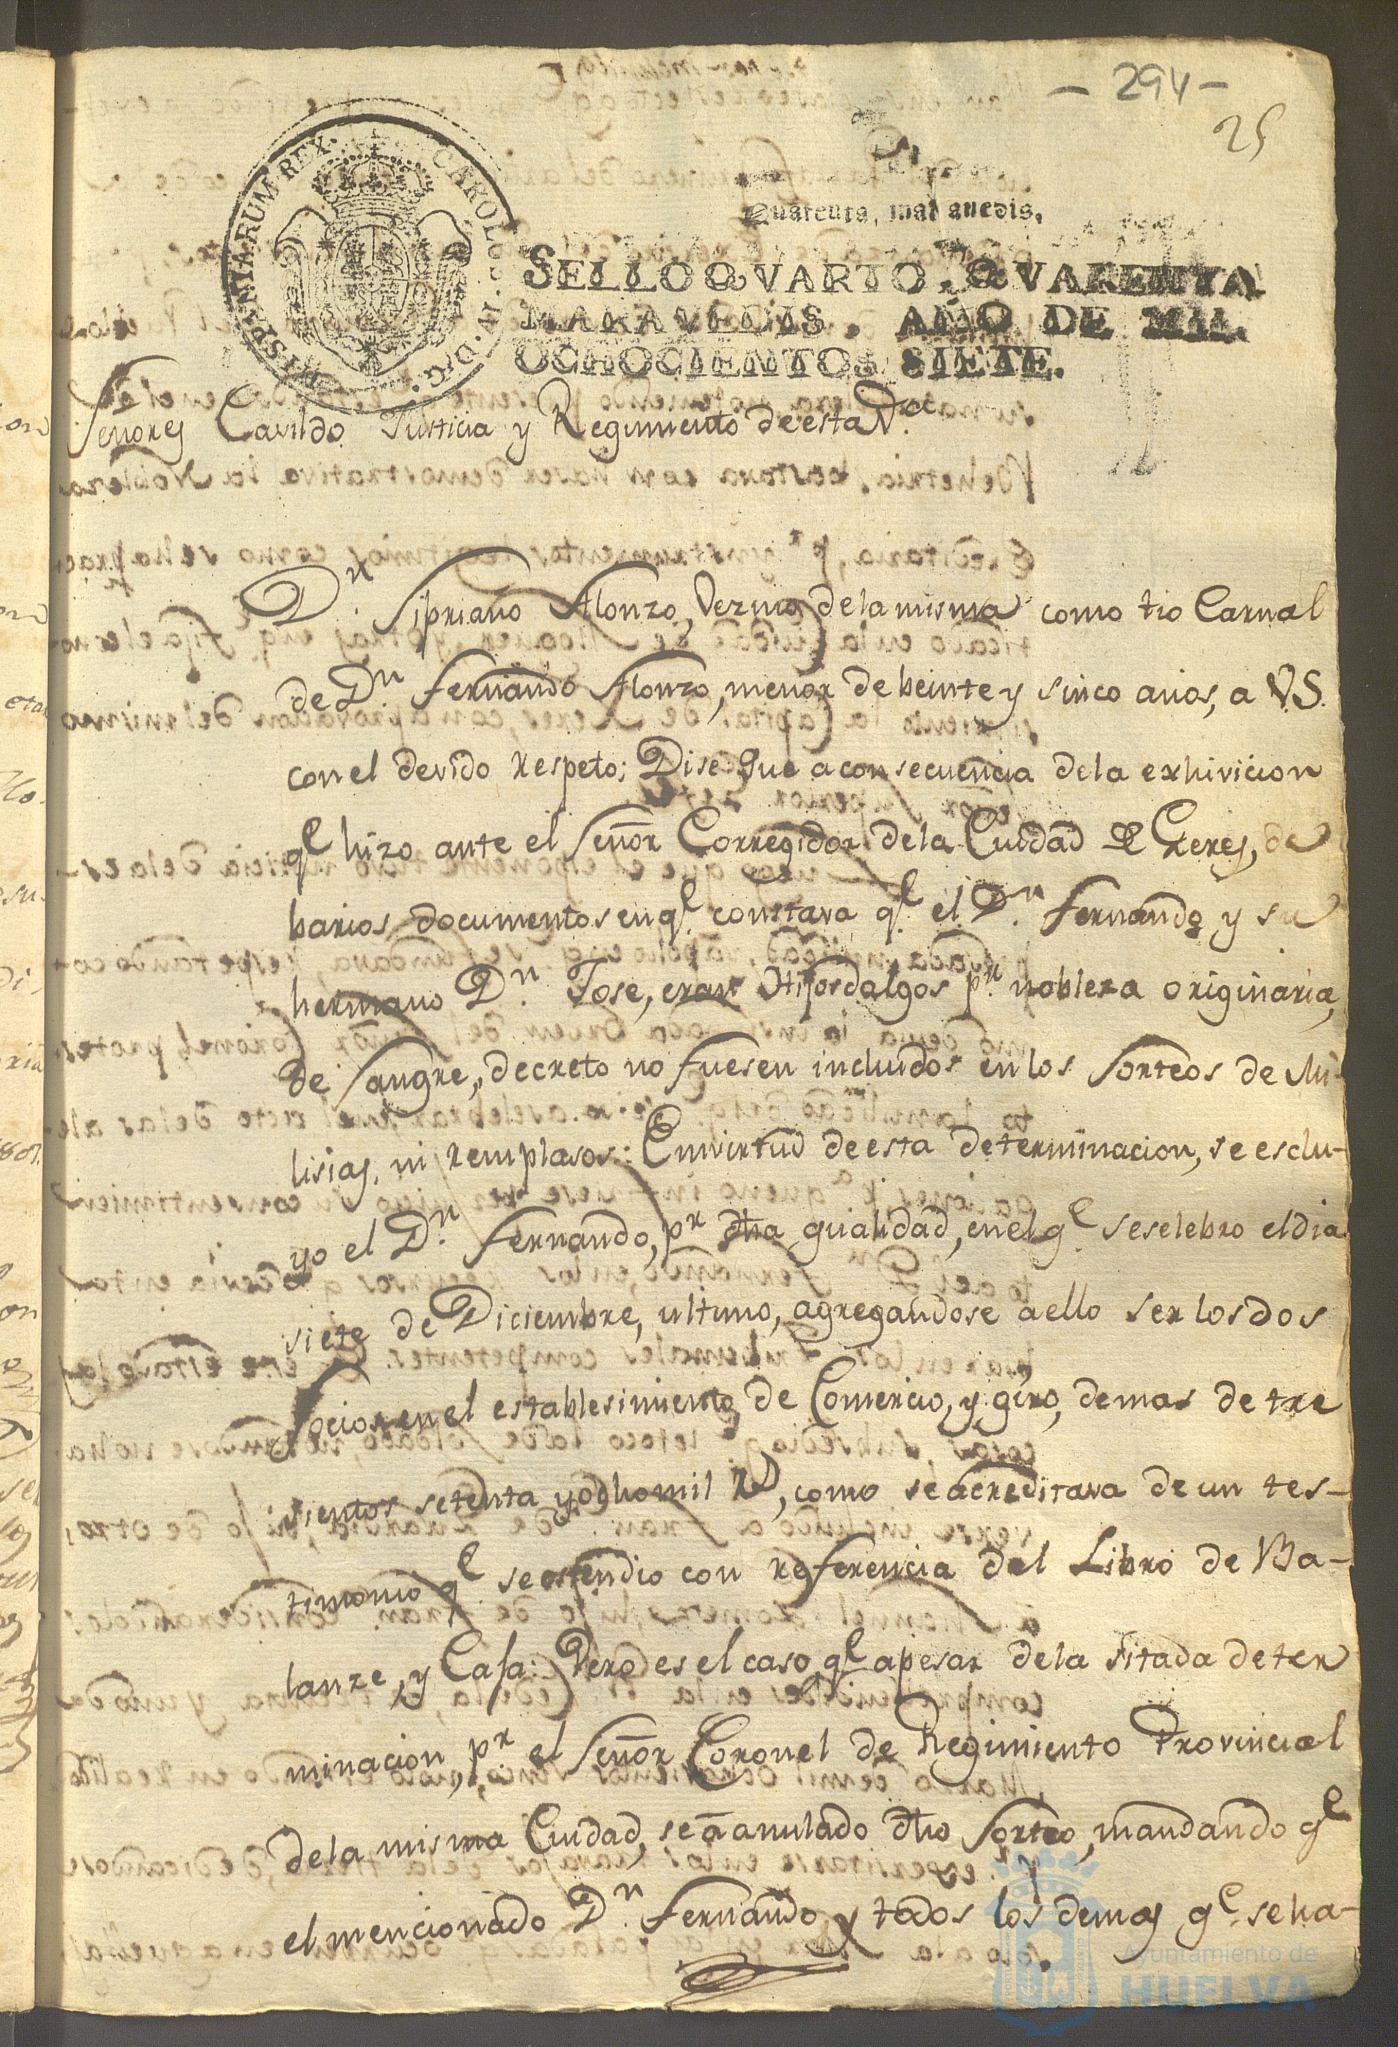 - 294 -
25
HISPANIARUM REX. CAROLUS IV. D. G.
Quarenta, maravedis.
SELLO QVARTO, QVARENTA
MARAVEDIS, AÑO DE MIL
OCHOCIENTOS SIETE.
Señores Cavildo Justicia y Regimiento de esta
Dn. Sipriano Alonzo, Vezino de la misma como tio Carnal
de Dn. Fernando Alonzo, menor de beinte y sinco anos, a V.S.
con el devido respeto; Dise que a consecuencia de la exhivicion
qe hizo ante el Señor Corregidor de la Ciudad de Xerez, de
barios documentos en qe. constava qe. el Dn. Fernando y su
hermano Dn. Jose, eran Hijosdalgos pr. nobleza originaria,
de sangre, decreto no fuesen incluidos en los Sorteos de Mi-
lisias, ni remplasos: En virtud de esta determinacion, se esclu-
yo el Dn. Fernando, pr dha qualidad, en el qe. se selebro el dia
siete de Diciembre, ultimo, agregandose a ello ser los dos
Socios en el establesimiento de Comercio, y giro, de mas de tre
sientos setenta y ocho mil Rs, como se acreditava de un tes-
timonio qe. se estendio con referencia del Libro de Ba-
lanze, y Casa: Pero es el caso qe apesar de la sitada deter
minacion, pr. el Señor Coronel de Regimiento Provincial
de la misma Ciudad, se a anulado dho Sorteo, mandando qe
el mencionado Dn. Fernando y todos los demas qe. se ha-
Ayuntamiento de
HUELVA